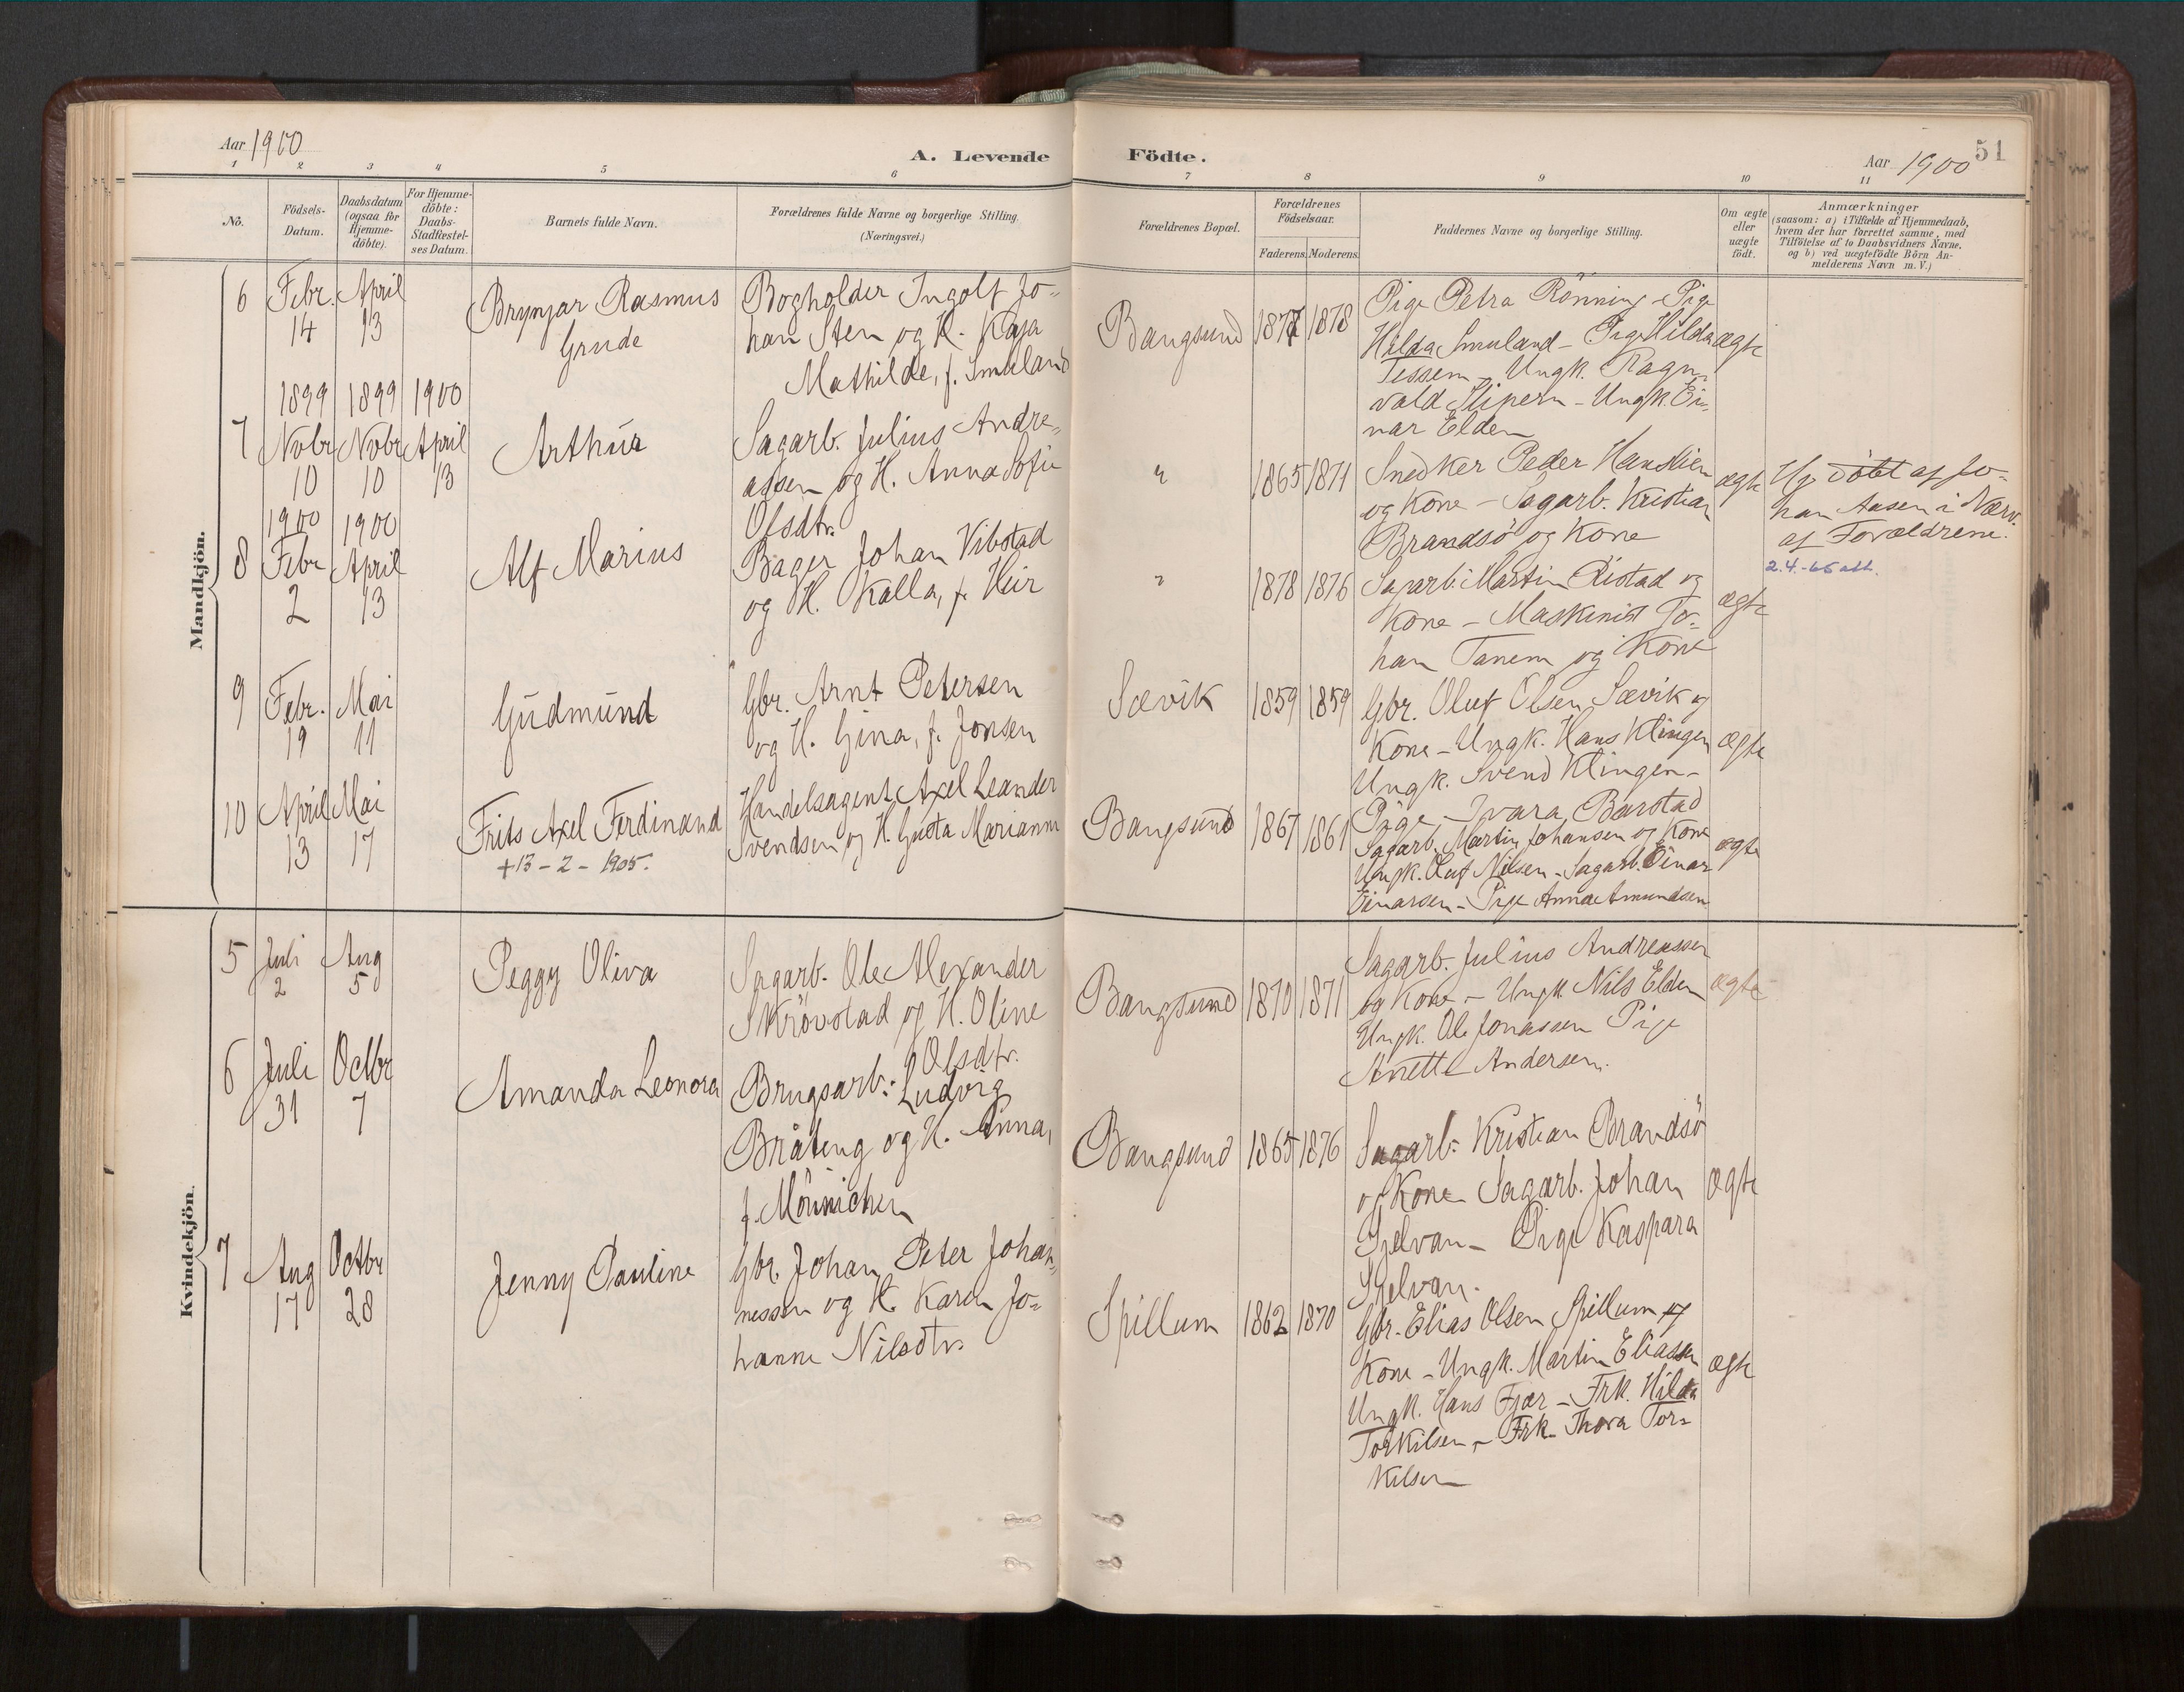 Aar 1900
A. Levende
Födte.
51
Aar 1900
1 2 3 4 5 6 7 8 9 10 11
No.
Födsels-
Datum.
Daabsdatum
(ogsaa for
Hjemme-
döbte).
For Hjemme-
döbte:
Daabs-
Stadfæstel-
ses Datum.
Barnets fulde Navn.
Forældrenes fulde Navne og borgerlige Stilling.
(Næringsvei.)
Forældrenes Bopæl.
Forældrenes
Födselsaar.
Faderens. Moderens.
Faddernes Navne og borgerlige Stilling.
Om ægte
eller
uægte
födt.
Anmærkninger
(saasom: a) i Tilfælde af Hjemmedaab,
hvem der har forrettet samme, med
Tilföielse af to Daabsvidners Navne,
og b) ved uægtefödte Börn An-
melderens Navn m. V.)
Mandkjön.
6
Febr.
14
April
13
Brynjar Rasmus
Grude
Bogholder Ingolf Jo-
han Sten og H. Kaja
Mathilde, f. Smuland
Bangsund
1877
1878
Pige Petra Rönning - Pige
Hilda Smuland - Pige Hilda
Tessem - Ungk. Ragn-
vald Slipern - Ungk. Ei-
nar Elden
ægte
7
1899
Nobr
10
1899
Nobr
10
1900
April
13
Arthur
Sagarb. Julius Andre-
assen og H. Anna Sofie
Olsdtr.
"
1865
1871
Snedker Peder Hanslien
og Kone - Sagarb. Kristian
Brandsö og Kone
ægte
Hj. döbt af Jo-
han Aasen i Nærv.
af Forældrene.
2.4.-66 att.
8
1900
Febr
2
1900
April
13
Alf Marius
Bager Johan Vibstad
og H. Kalla, f. Heir
"
1878
1876
Sagarb. Martin Ristad og
Kone - Maskinist Jo-
han Tanem og Kone
ægte
9
Febr.
19
Mai
11
Gudmund
Gbr. Arnt Petersen
og H. Gina, f. Jonsen
Sævik
1859
1859
Gbr. Oluf Olsen Sævik og
Kone - Ungk. Hans Klingen
Ungk. Svend Klingen -
Pige Ivara Barstad
ægte
10
April
13
Mai
17
Frits Axel Ferdinand
+13-2-1905.
Handelsagent Axel Leander
Svendsen og H. Gusta Marianne
Bangsund
1867
1861
Sagarb. Martin Johansen og Kone
Ungk. Oluf Nilsen - Sagarb. Einar
Einarsen - Pige Anna Amundsen
ægte
Kvindekjön.
5
Juli
2
Aug
5
Peggy Oliva
Sagarb. Ole Alexander
Skrövstad og H. Oline
Olsdtr.
Bangsund
1870
1871
Sagarb. Julius Andreassen
og Kone - Ungk. Nils Elden
Ungk. Ole Jonassen Pige
Anette Andersen.
ægte
6
Juli
31
Octbr
7
Amanda Leonora
Brugsarb. Ludvig
Bråteng og H. Anna,
f. Mönnichen
Bangsund
1865
1876
Sagarb. Kristian Brandsö
og Kone Sagarb. Johan
Sjelvan - Pige Kaspara
Sjelvan.
ægte
7
Aug
17
Octbr
28
Jenny Pauline
Gbr. Johan Peter Johan-
nessen og H. Karen Jo-
hanne Nilsdtr.
Spillum
1862
1870
Gbr. Elias Olsen Spillum og
Kone - Ungk. Martin Eliassen
Ungk. Hans Fjær - Frk. Hilda
Torkilsen - Frk. Thora Tor-
kilsen
ægte